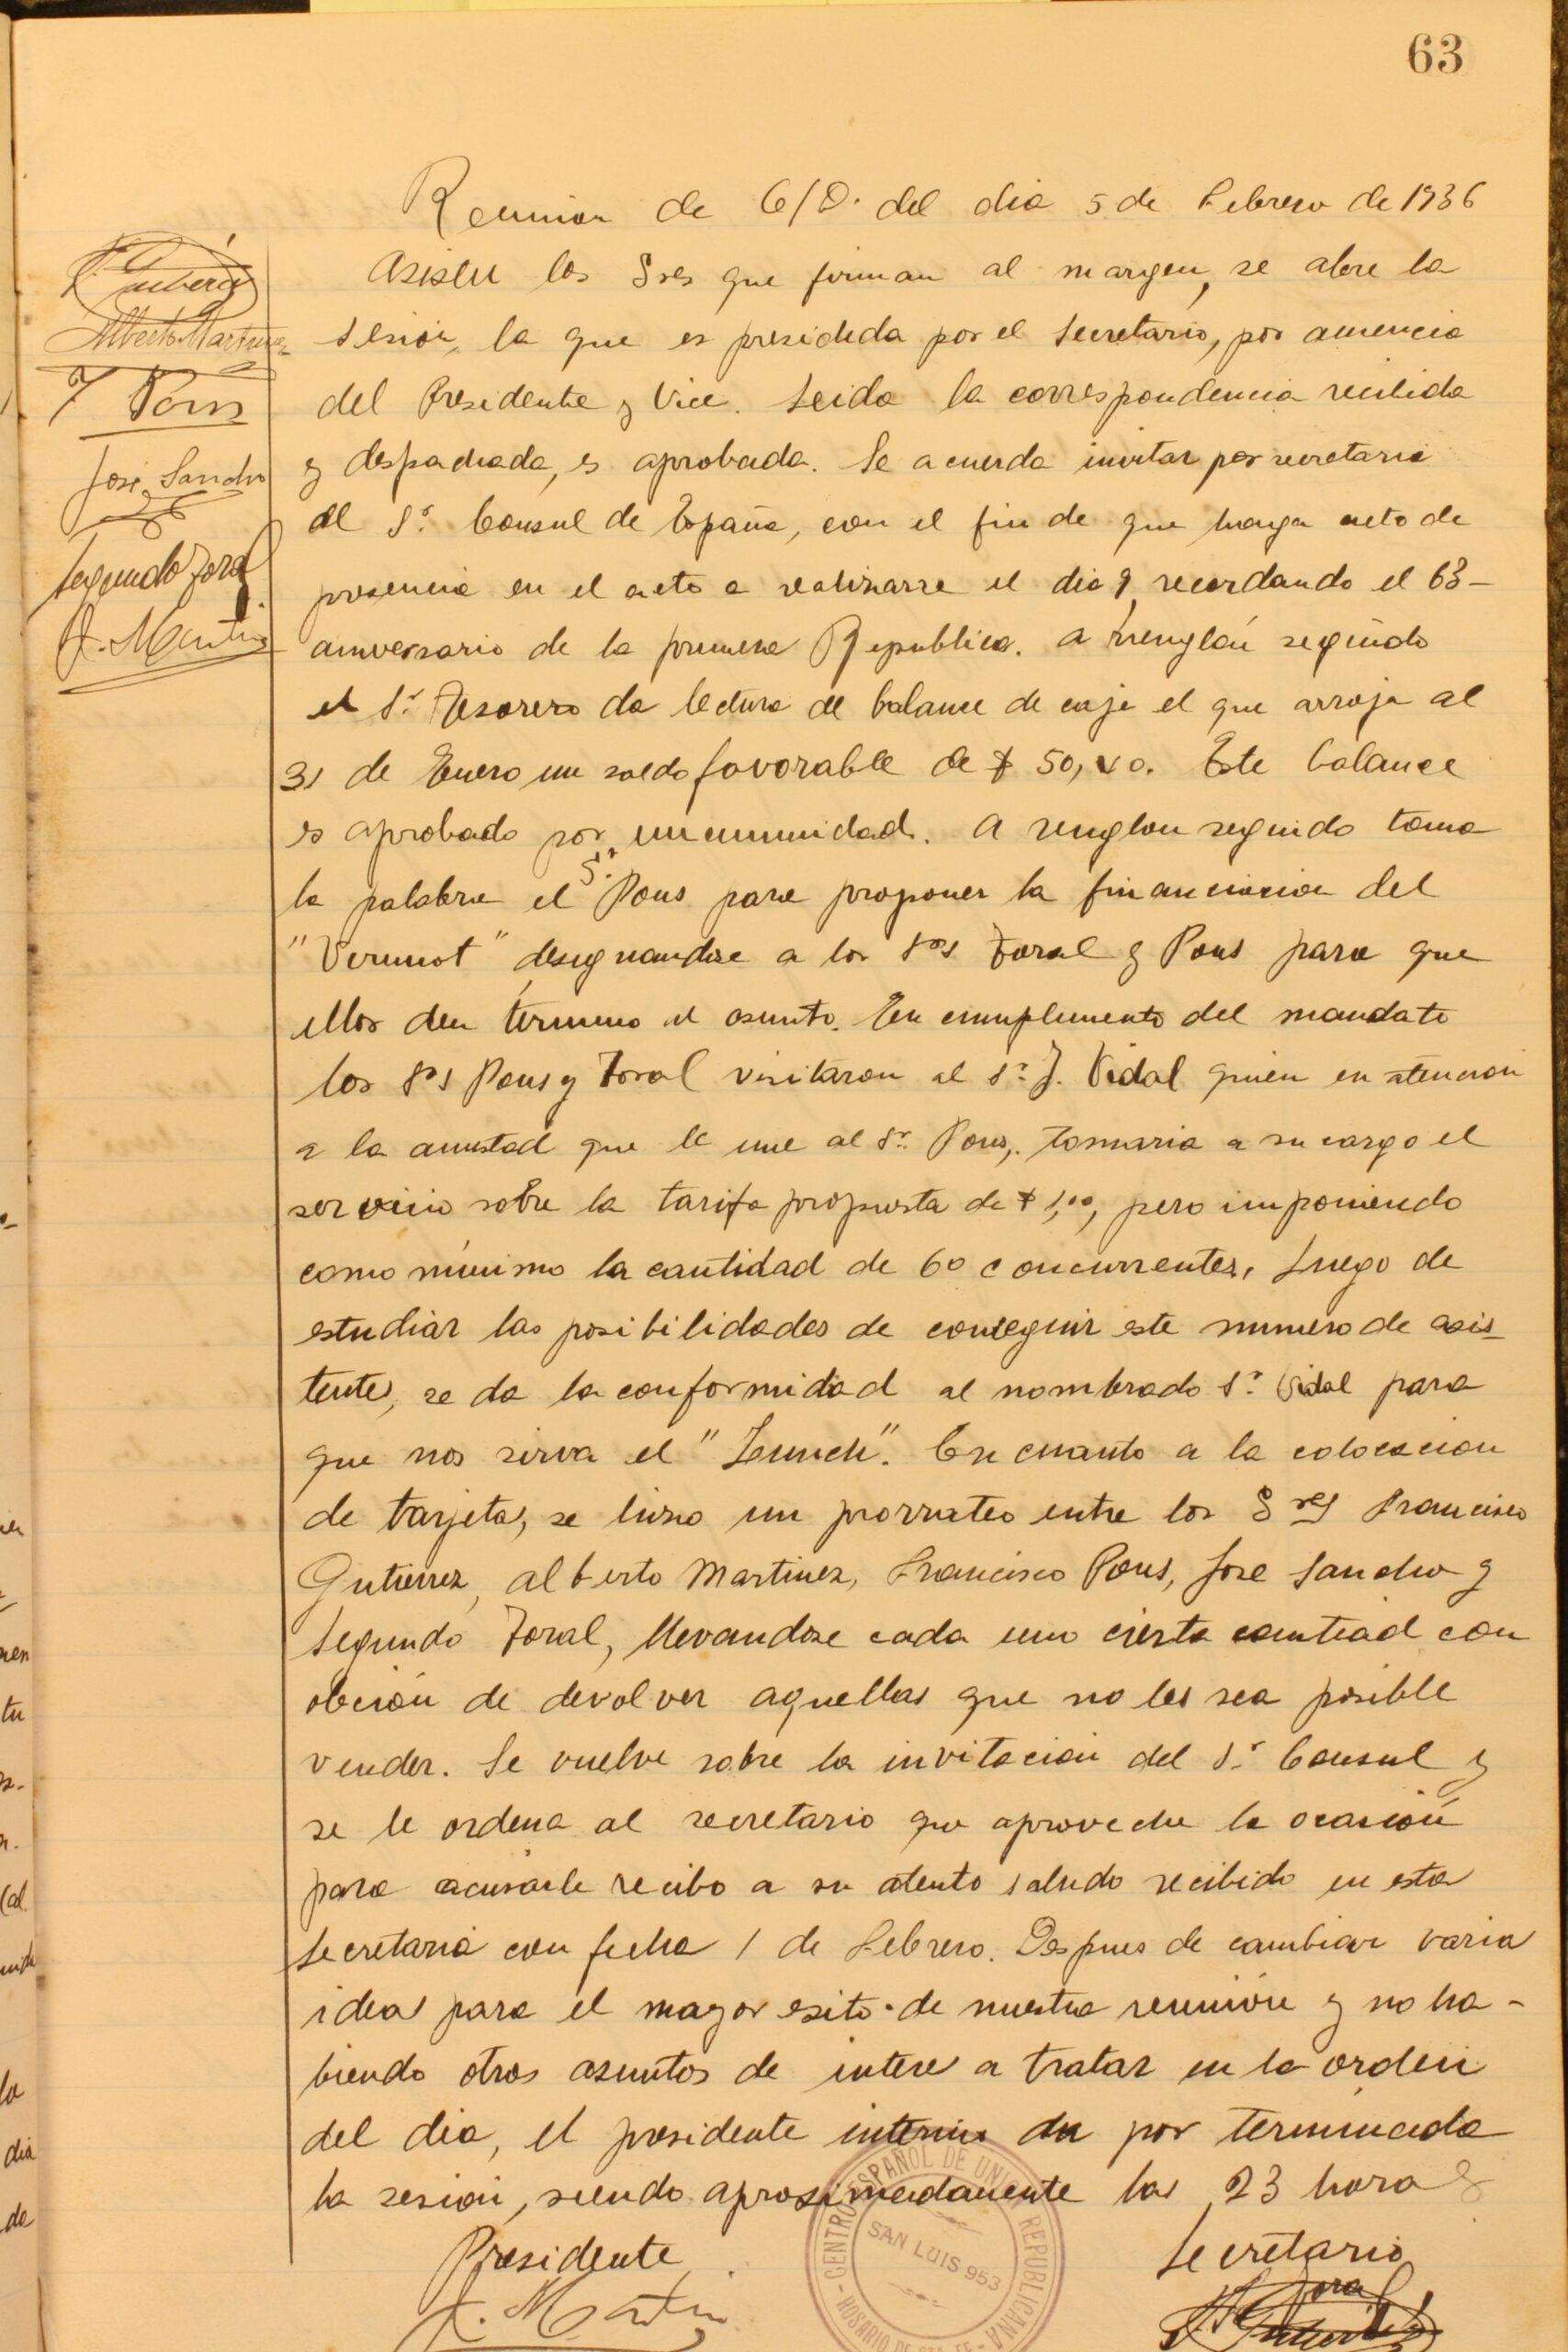 63
Reunion de C/D. del dia 5 de Febrero de 1936
Asisten los Sres que firman al margen, se abre la
sesión, la que es presidida por el secretario, por ausencia
del Presidente y Vice. Leida la correspondencia recibida
y despachada, es aprobada. Se acuerda invitar por secretaria
al Sr. Consul de España, con el fin de que haga acto de
presencia en el acto a realizarse el dia 9, recordando el 63-
aniversario de la primera Republica. A renglón seguido
el Sr. Tesorero da lectura al balance de caja el que arroja al
31 de Enero un saldo favorable de $ 50,40. Este balance
es aprobado por unanimidad. A renglon seguido toma
la palabra el Sr. Pons para proponer la financiacion del
"Vermot" designandose a los Srs Toral y Pons para que
ellos den termino al asunto. En cumplimento del mandato
los Srs Pons y Toral visitaron al Sr. J. Vidal quien en atencion
a la amistad que le une al Sr. Pons, tomaria a su cargo el
servicio sobre la tarifa propuesta de $ 1,00, pero imponiendo
como mínimo la cantidad de 60 concurrentes, luego de
estudiar las posibilidades de conseguir este numero de asis-
tentes, se da la conformidad al nombrado Sr. Vidal para
que nos sirva el "Lunch". En cuanto a la colocacion
de tarjetas, se hizo un prorrateo entre los Sres Francisco
Gutierrez, Alberto Martinez, Francisco Pons, Jose Sancho y
Segundo Toral, llevandose cada uno cierta cantiad con
obción de devolver aquellas que no les sea posible
vender. Se vuelve sobre la invitación del Sr. Consul y
se le ordena al secretario que aproveche la ocasión
para acusarle recibo a su atento saludo recibido en esta
secretaria con fecha 1 de Febrero. Despues de cambiar varias
ideas para el mayor esito de nuestra reunión y no ha-
biendo otros asuntos de interes a tratar en la orden
del dia, el presidente interino da por terminada
la sesion, siendo aproximadamente las 23 horas
Presidente
Secretario
Alberto Martinez
F Pons
José Sancho
Segundo Toral
A. Martin
CENTRO ESPAÑOL DE UNION REPUBLICANA
SAN LUIS 953
ROSARIO DE STA. FE